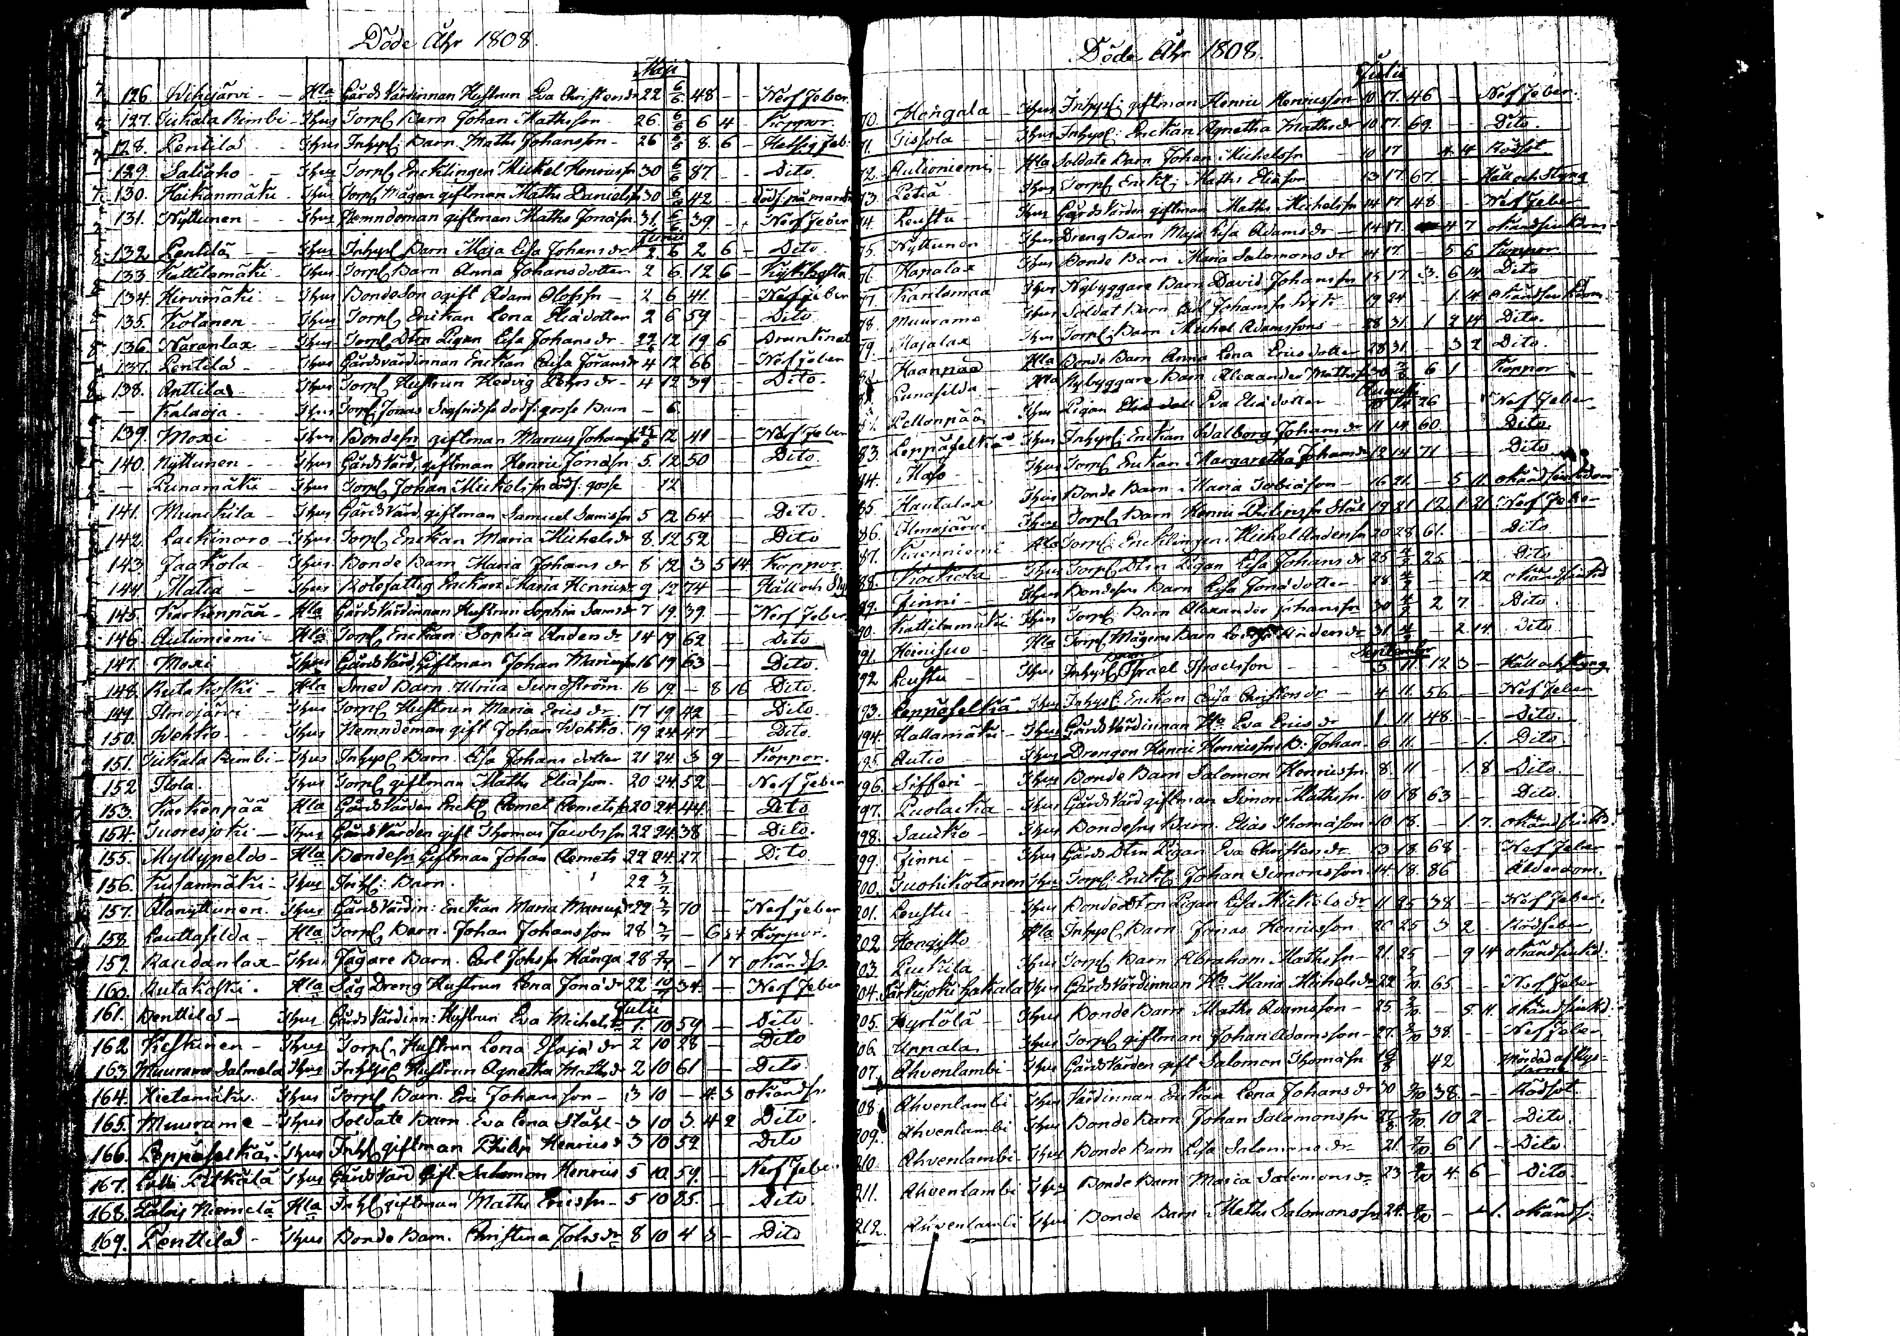 Döde Åhr 1808.
Maji
126. Wehijärvi - Hla Gårds Värdinnan Hustrun Eva Christensdr 22 6/6 48 - - Nerf Feber
127. Tiukala Rimbi - Thus Torp. Barn Johan Mathsson - 26 6/6 6 4 - Koppor.
128. Pentilä - Thus Inhys. Barn Maths Johansson - 26 6/6 8. 6 - Feb.
129. Saloho - Thus Torp. Enklingen Mickel Henricsson 30 6/6 87 - - Dito.
130. Haikanmäki - Thus Torp. Mågen giftman Maths Danielsson 30 6/6 42 - -
131. Nyttunen - Thus Nemndeman giftman Maths Jonasson 31 6/6 39. - - Nerf Feber
Junii
132. Pentilä - Thus Inhys. Barn Maja Lisa Johansdr 2 6 2 6 - Dito.
133. Kattilamäki - Thus Torp. Barn Anna Johansdotter 2 6. 12 6 -
134. Hirvimäki - Thus Bondeson ogift Adam Olofssn - 2 6 41. - Nerf Feber
135. Kotanen - Thus Torp. Enckan Lena Eliædotter 2 6 59 - - Dito.
136. Naranlax - Thus Torp. Dtn Pigan Lisa Johansdr - 22 12 19 6 Drunknat
137. Pentilä - Thus Gårdsvärdinnan Enckan Caisa Jöransdr 4 12 66 - - Nerf feber
138. Anttila - Thus Torp. Hustrun Hedvig Pehrsdr - 4 12 39 - - Dito.
- Kalaoja - Thus Torp. Jonas Sigfridss dödf. gosse Barn - 6.
139. Moxi - Thus Bondesn giftman Marcus Johanssn 12 41 - - Nerf Feber
140. Nyttunen - Thus Gårds Värd. giftman Henric Jonassn 5. 12 50 - Dito.
- Punamäki - Thus Torp. Johan Mickelssn dödf. gosse 12
141. Munikila - Thus Gårds Värd. giftman Samuel Samssn 5 12 64 - - Dito.
142. - Thus Torp. Enckan Maria Michelsdr 8. 12 52 - - Dito
143. Jaakola - Thus Bonde Barn Maria Johansdr 8 12 3 5 14 Koppor
144. Matla - Thus Enckan Maria Henricsdr 9 12 74 - Håll och Styng
145. Karhenpää - Hla Gårds Värdinnan Hustrun Sophia Samsdr 7 19 39. - - Nerf Feber
146. Autioniemi - Hla Torp. Enckan Sophia Andersdr 14 19 62 - Dito
147. Moxi - Thus Gårds Värd. Giftman Johan Mariasn 16 19 63 - Dito.
148. Rutakoski - Hla Smed Barn Ulrica Sundström 16 19 - 8 16 Dito.
149. Ilmojärvi - Thus Torp. Hustrun Maria Ericsdr 17 19 42 - - Dito.
150. Wehko - Thus Nemndeman gift Johan Wehko 19 24 47 - - Dito.
151. Tiukala Rimbi - Thus Inhys. Barn. Lisa Johansdotter 21 24. 3 9 - Koppor.
152. Ilola - Thus Torp. giftman Maths Eliasson - 20 24. 52 - Nerf feber
153. Karhenpää - Hla Gårds Värden Enckl. Clemet Clemetss 20 24. 44. - Dito
154. Suoresjoki - Thus Gårds Värden gift Thomas Jacobssn 22 24. 38 - - Dito.
155. Myllypeldo - Hla Bondesn Giftman Johan Clemets 22 24. 27. - Dito
156. - Thus Inh. Barn. 22 3/7
157. Alanyttunen. Thus Gårds Värdin: Enckan Maria Marcusdr 22 3/7 70 - Nerf feber
158. Lauttasilda - Hla Torp. Barn. Johan Johansson 28 3/7 - 6 14 Koppor
159. Raudanlax - Thus Jägare Barn. Carl Johssn Kånga 28 3/7 - 1 7 okänd s.
160. Rutakoski. Hla Säg Dreng Hustrun Lena Jonædr 22 10/7 34 - Nerf feber
Julii
161. Penttilä - Thus Gårds Värdinn: Hustrun Eva Michelsd 1. 10 59 - - Dito
162. Kiskinen - Thus Torp. Hustrun Lena Isaja dr 2 10 28 - Dito
163. Muurame Salmela Thus Inhys. Hustrun Agnetha Mathsdr 2 10 61 - Dito.
164. Hietamäki. Thus Torp. Barn. Eric Johansson - 3 10 - 4. 3 okänd s.
165. Muurame - Thus Soldate Barn. Eva Lena Ståhl - 3 10 3. 4 2 Dito.
166. Leppäselkä. Thus Inh. giftman Philip Henrics 3 10 52 Dito
167. Pitkälä Thus Gårds Värd. Gift. Salomon Henrics 5 10 59. - Nerf Feber
168. Niemelä Hla Inh. giftman Maths Ericssn - 5 10 85. - Dito
169. Penttilä - Thus Bonde Barn. Christina Johsdr 8 10 4 3 - Dito
Döde Åhr 1808.
Julii
70. Hongala - Thus Inhys: giftman Henric Henricsson 10 17. 46 - - Nerf Feber.
71. Tissola - Thus Inhys. Enckan Agnetha Mathsdr 10 17. 69. Dito.
72. Autioniemi - Hla Soldate Barn Johan Michelssn 10 17 4. 14 Rödsot
73. Petiä - Thus Torp. Enckl. Maths Eliasson - 13 17. 67. - Håll och Styng
74. Leustu - Thus Gårds Värden giftman Maths Michelssn 14 17 48 - - Nerf Feber
75. Nyttunen - Thus Dreng Barn Maja Lisa Adamsdr - 14 17. 4 7 okänd siukdom
76. Hapalax - Thus Bonde Barn Maria Salomonsdr 14 17. - 5 6 Koppor.
77. Kandomaa Thus Nybyggare Barn David Johanssn 15 17. 3. 6 14 Dito
78. Muurame - Thus Soldat Barn Carl Johanssn 19 24 - 1. 14. okänd siukdom
79. Majalax Thus Torp. Barn Michel Adamssons - 28 31 1 2 14 Dito.
Haanpää Hla Bonde Barn Anna Lena Ericsdotter 28 31. - 3 2 Dito.
Lunasilda - Hla Nybyggare Barn Alexander Mathss 30 6 1 Koppor
Augusti
Pellonpää Thus Pigan Eva Eliædotter 14 26 - Nerf Feber
83. Leppäselkä - Thus Inhys. Enckan Walborg Johansdr 11 14 60. Dito.
84. Maso - Thus Torp. Enckan Margaretha Johansdr 12 14 71 - Dito
85. Hautalax Thus Bonde Barn Maria Tobiasson - 16 21. - 5 11 okänd siukdom
86. Ilmojärvi Thus Torp. Barn Henric Ståhl 19 21 12. 1 21 Nerf Feber
87. Kuonniemi Hla Torp. Encklingen Michel Anderssn 20 28. 61. Dito
88. Kockola Thus Torp. Dtn Pigan Lisa Johansdr 25 4/9 25 - Dito
89. Finni - Thus Bondesns Barn Lisa Jonædotter 28 4/9 - - 12 okänd siukd
90. Kattilamäki Thus Torp. Barn Alexander Johanssn 30 4/9 2 7. - Dito.
91. Hoinisuo - Hla Torp. Mågens Barn Andersdr 31 4/9 - 2 14. Dito
September
92. Leustu - Thus Inhys. Barn Israel Israelsson 3 11 12 3 - Håll och Styng
93. Leppäselkä Thus Inhys. Enckan Caisa Christensdr - 4 11. 56 - - Nerf Feber
194. Hallamäki - Thus Gårds Värdinnan Ho Eva Ericsdr 1 11 48 - - Dito.
95. Autio - Thus Drengen Henric Henricssns B. Johan 6 11. - - 1. Dito.
196. Sifferi - Thus Bonde Barn Salomon Henricssn. 8. 11 - 1. 8 Dito.
97. Puolacka - Thus Gårds Värd giftman Simon Mathssn. 10 18 63 - - Dito.
98. Saucko - Thus Bondesns Barn. Elias Thomasson 10 18. - 1. 7. okänd siukd
99. Finni - Thus Gårds Dtn Pigan Eva Christensdr 13 18. 68 - - Nerf Feber
200. Suohikotanen Thus Torp. Enckl. Johan Simonsson 14 18. 86 - Ålderdom.
201. Leustu - Thus Bonde Dtn Pigan Lisa Mickelsdr 11 25 38 - - Nerf Feber.
202. Hongisto Hla Inhys. Barn Jonas Henricsson. 20 25 3 2 - Rödfeber
203. Ruikila Thus Torp. Barn Abraham Mathssn - 21. 25 - 9 14 okänd siukd.
204. Särkijoki Hakala Thus Gårds Värdinnan Ho Maria Michelsdr 22 2/10 65 - - Nerf Feber
205. Hyrtölä - Thus Bonde Barn Maths Adamsson - 25 2/10. - 5. 11. okänd siukd.
206. Uppala Thus Torp. giftman Johan Adamsson - 27. 2/10 38. - - Nerf Feber
207. Ahvenlambi Thus Gårds Värden gift Salomon Thomassn 42 - Mördad af Rys
sarne
208 Ahvenlambi Thus Värdinnan Enckan Lena Johansdr 30 2/10 38. - Rödsot.
209. Ahvenlambi Thus Bonde Barn Johan Salomonssn 27 2/10 10 2 - Dito.
210. Ahvenlambi Thus Bonde Barn Lisa Salomonsdr. 21. 2/10 6 1 - Dito.
211. Ahvenlambi Thus Bonde Barn Maria Salomonsdr 23 2/10 4. 6 - Dito.
212. Ahvenlambi Thus Bonde Barn Maths Salomonssn 24. 2/10 - 1. okänd s.